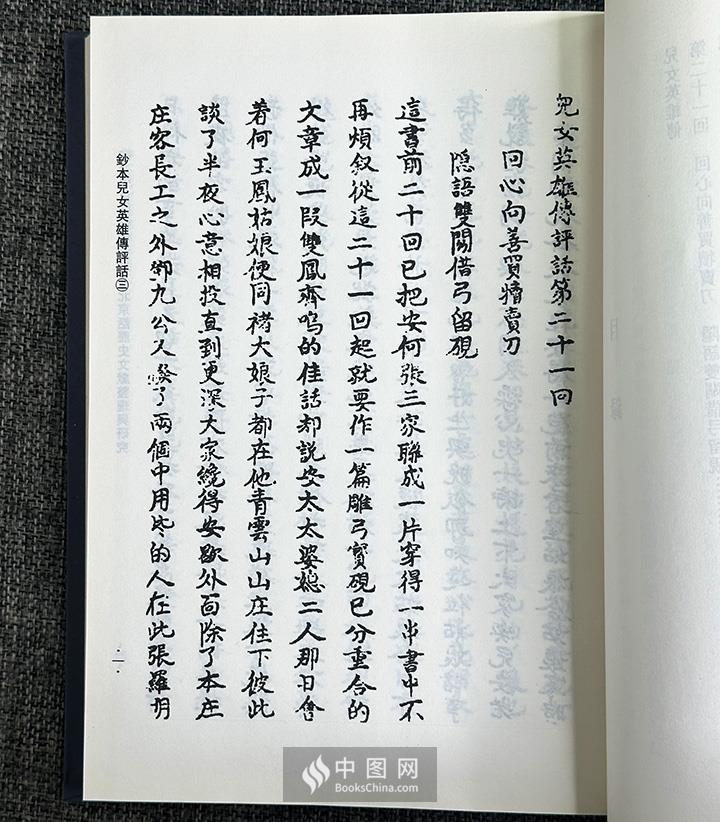 兒女英雄傳評話第二十一回
回心向善買犢賣刀
隱語雙關借弓留硯
這書前二十回已把安何張三家聯成一片穿得一串書中不
再煩叙從這二十一回起就要作一篇雕弓寳硯已分重合的
文章成一段雙鳳齊鳴的佳話却説安太太婆媳二人那日會
着何玉鳳姑娘便同褚大娘子都在他青雲山山庄住下彼此
談了半夜心意相投直到更深大家纔得安歇外面除了本庄
庄客長工之外鄧九公又撥了兩個中用些的人在此張羅明
鈔本兒女英雄傳評話㊂
·一·
中图网
BooksChina.com